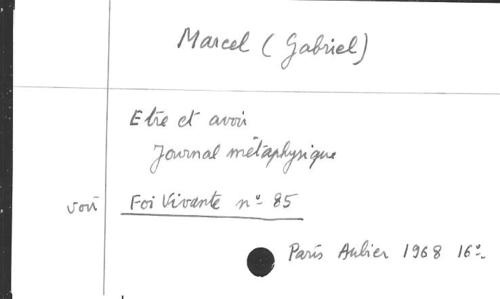 Marcel (Gabriel)
Etre et avoir
Journal métaphysique
voir Foi Vivante n° 85
Paris Aubier 1968 16°.